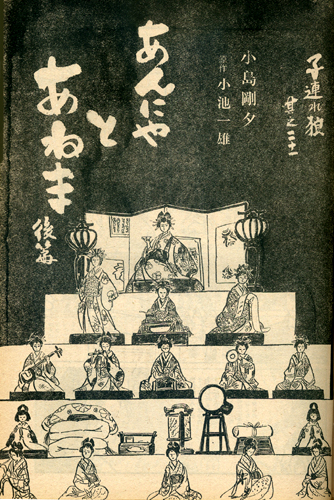 子連れ狼
其之三十一
小島剛夕
原作 小池一雄
あんにゃ
と
あねま
後篇